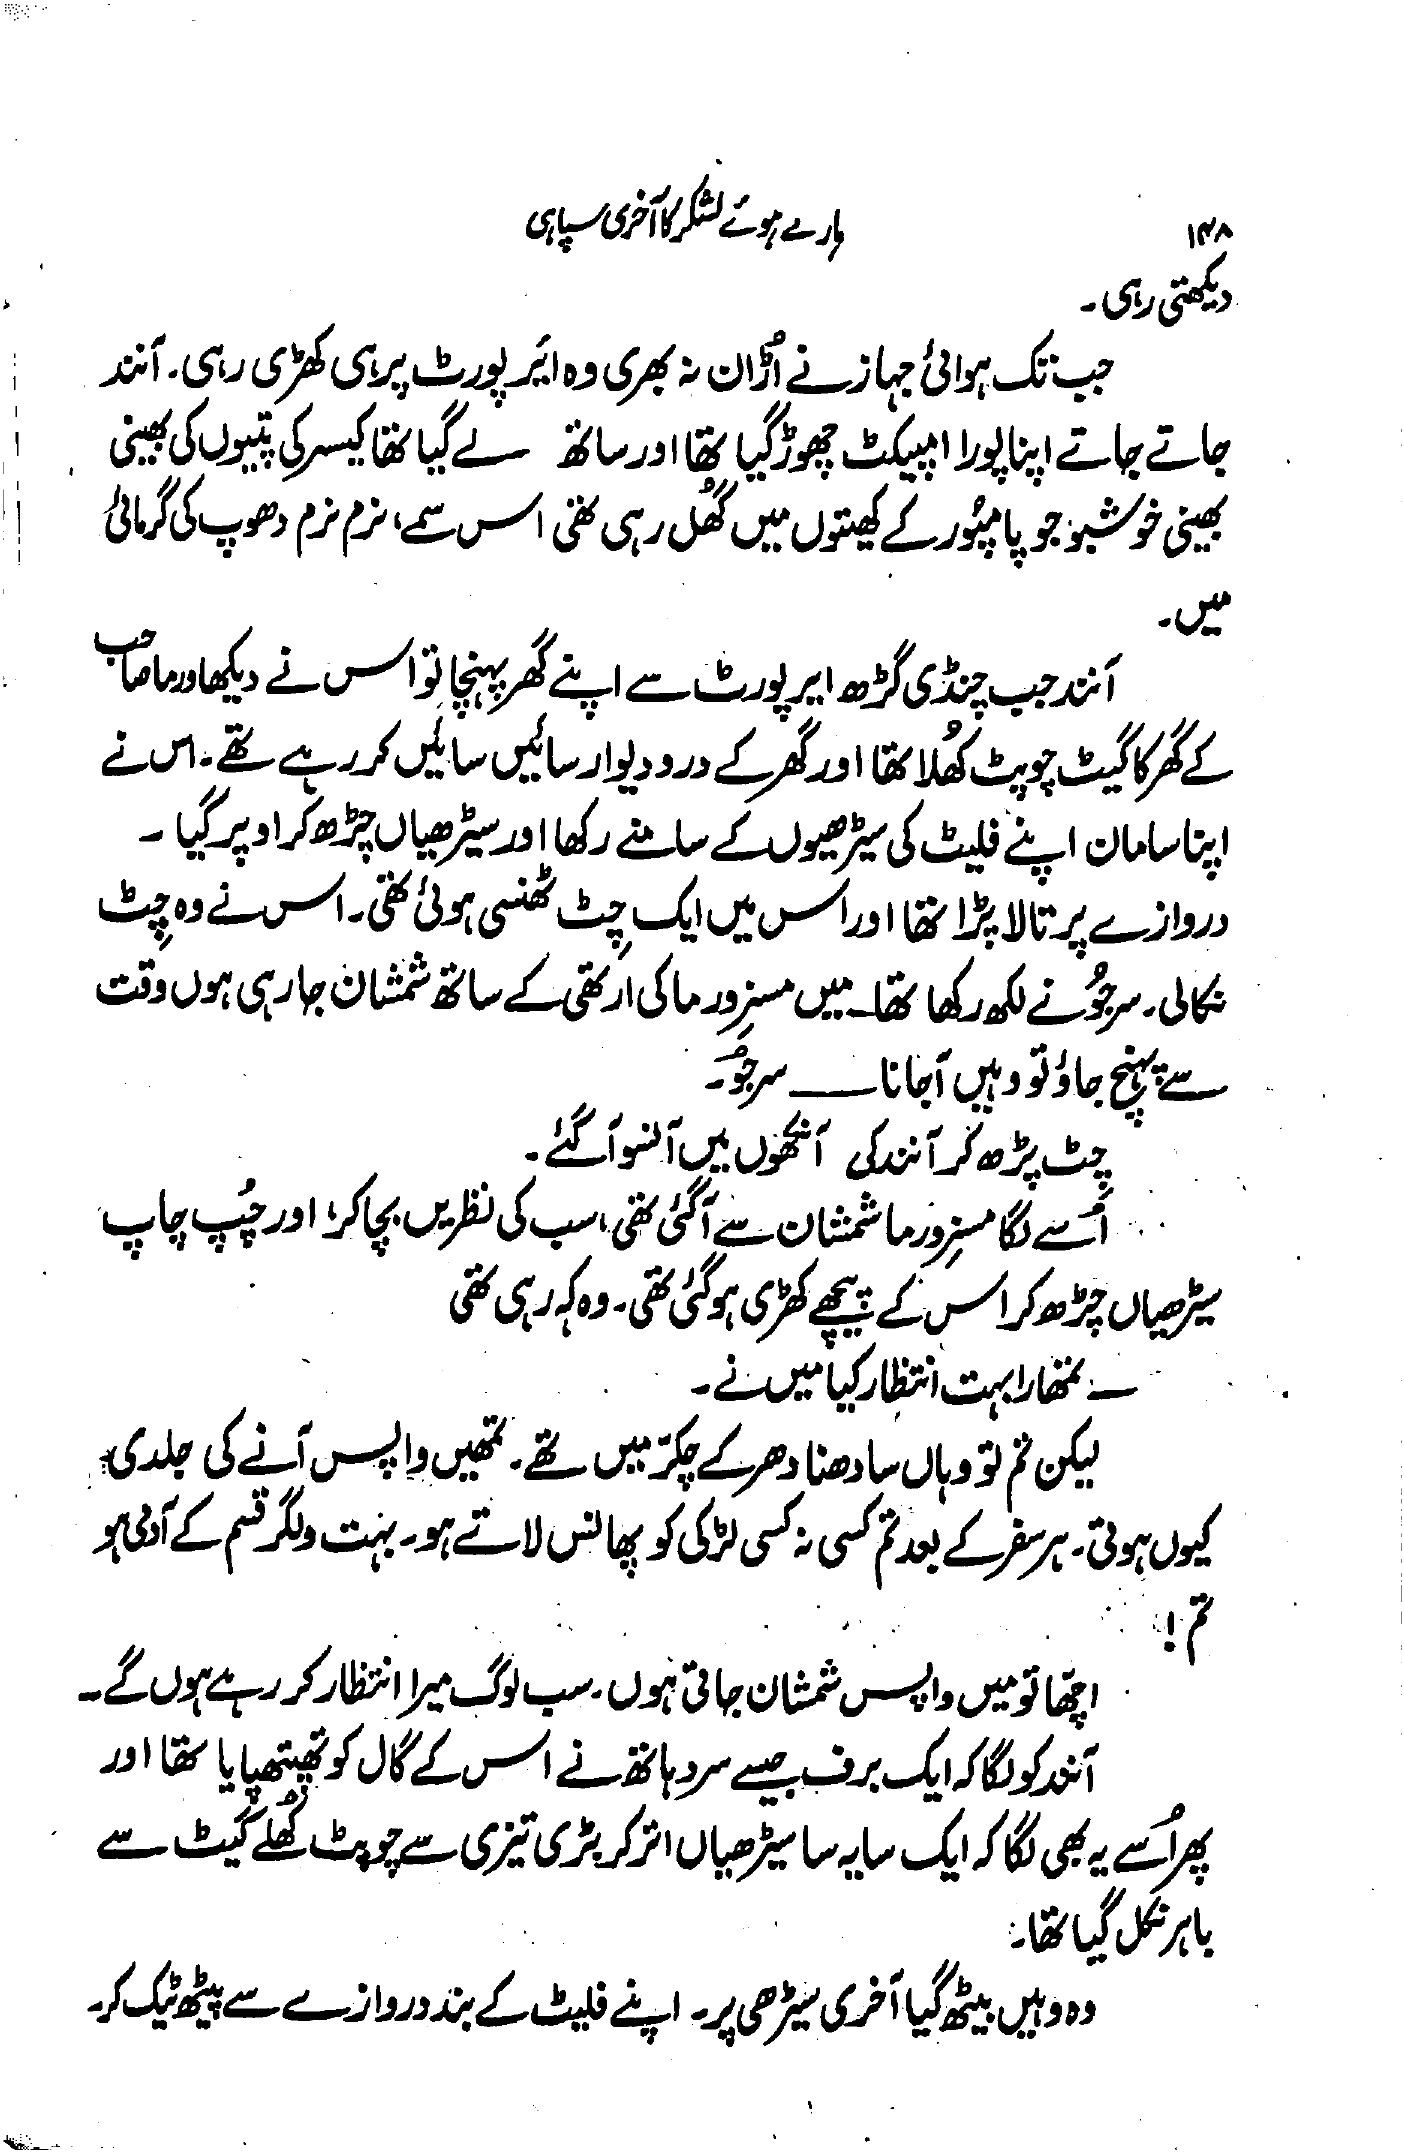 ۱۴۸
ہارے ہوئے لشکر کا آخری سپاہی
دیکھتی رہی۔
جب تک ہوائی جہاز نے اُڑان نہ بھری وہ ائیر پورٹ پر ہی کھڑی رہی۔ آنند
جاتے جاتے اپنا پورا امپیکٹ چھوڑ گیا تھا اور ساتھ لے گیا تھا کیسر کی پتیوں کی بھینی
بھینی خوشبو جو پامپُور کے کھیتوں میں گھُل رہی تھی اس سمے، نرم نرم دھوپ کی گرمائی
میں۔
آنند جب چنڈی گڑھ ایر پورٹ سے اپنے گھر پہنچا تو اس نے دیکھا ورما صاحب
کے گھر کا گیٹ چوپٹ کھُلا تھا اور گھر کے در و دیوار سائیں سائیں کر رہے تھے۔ اس نے
اپنا سامان اپنے فلیٹ کی سیڑھیوں کے سامنے رکھا اور سیڑھیاں چڑھ کر اوپر گیا ۔
دروازے پر تالا پڑا تھا اور اس میں ایک چِٹ ٹھنسی ہوئی تھی۔ اس نے وہ چِٹ
نکالی۔ سرجُو نے لکھ رکھا تھا۔ میں مسز ورما کی ارتھی کے ساتھ شمشان جا رہی ہوں وقت
سے پہنچ جاؤ تو وہیں آ جانا ــــ سرجُو۔
چِٹ پڑھ کر آنند کی آنکھوں میں آنسو آ گئے۔
اُسے لگا مسز ورما شمشان سے آ گئی تھی، سب کی نظریں بچا کر، اور چُپ چاپ
سیڑھیاں چڑھ کر اس کے پیچھے کھڑی ہو گئی تھی۔ وہ کہہ رہی تھی
ــ تمھارا بہت انتظار کیا میں نے۔
لیکن تم تو وہاں سادھنا دھر کے چکّر میں تھے۔ تمھیں واپس آنے کی جلدی
کیوں ہوتی۔ ہر سفر کے بعد تم کسی نہ کسی لڑکی کو پھانس لاتے ہو۔ بہت ولگر قسم کے آدمی ہو
تم!
اچھّا تو میں واپس شمشان جاتی ہوں۔ سب لوگ میرا انتظار کر رہے ہوں گے۔
آنند کو لگا کہ ایک برف جیسے سرد ہاتھ نے اس کے گال کو تھپتھپایا تھا اور
پھر اُسے یہ بھی لگا کہ ایک سایہ سا سیڑھیاں اتر کر بڑی تیزی سے چوپٹ کھُلے گیٹ سے
باہر نکل گیا تھا۔
وہ وہیں بیٹھ گیا آخری سیڑھی پر۔ اپنے فلیٹ کے بند دروازے سے پیٹھ ٹیک کر۔